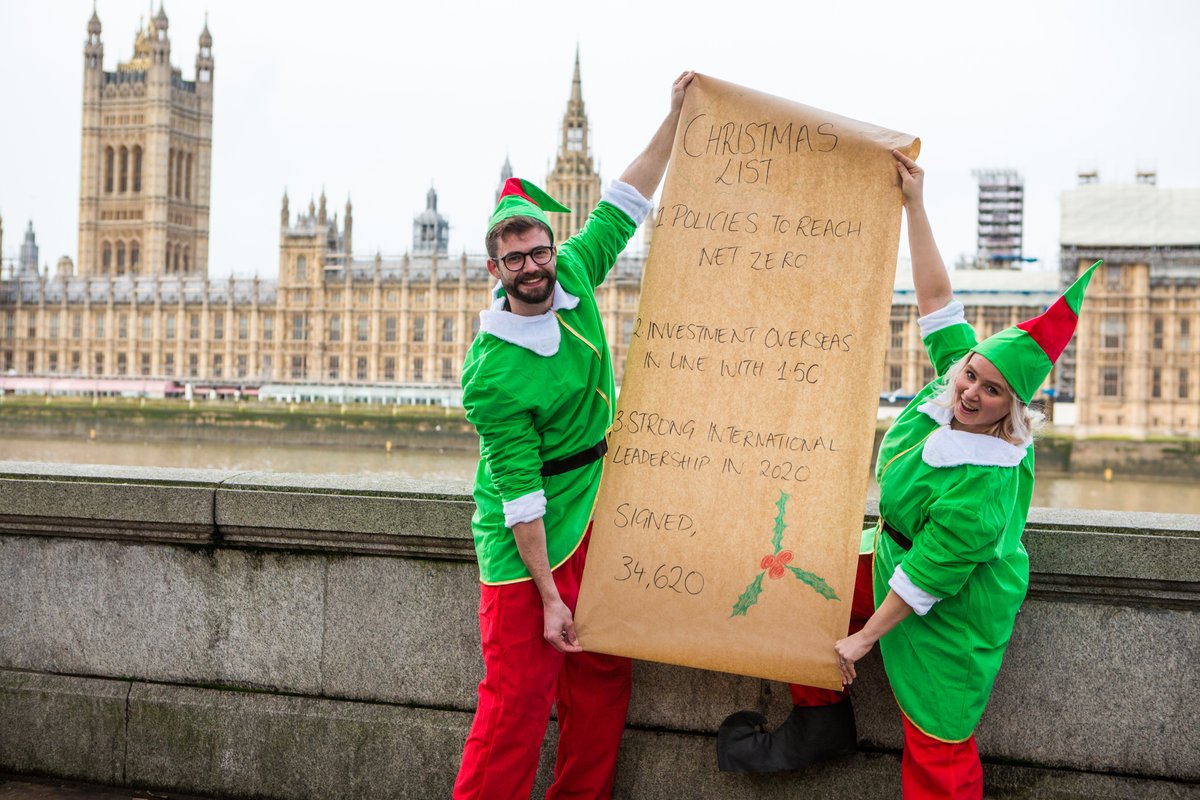 CHRISTMAS
LIST
1. POLICIES TO REACH
NET ZERO
2. INVESTMENT OVERSEAS
IN LINE WITH 1.5C
3. STRONG INTERNATIONAL
LEADERSHIP IN 2020
SIGNED,
34,620